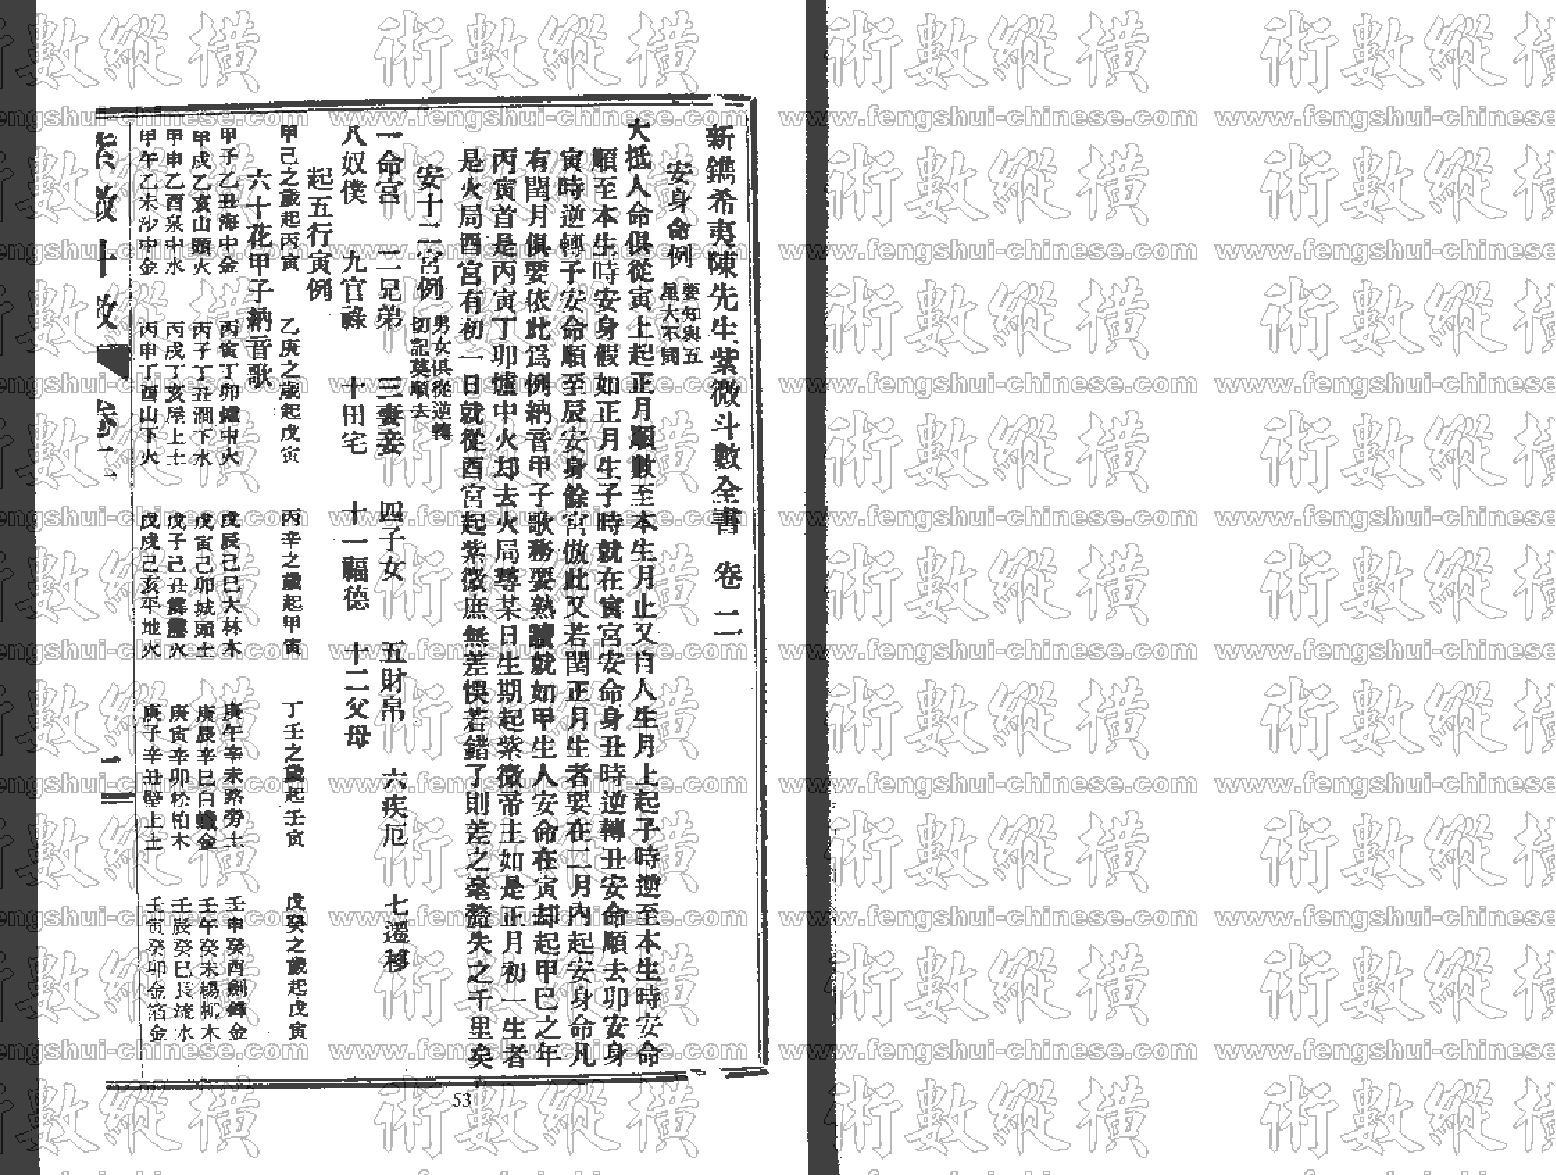 新鐫希夷陳先生紫微斗數全書 卷二
安身命例 要知與五星大不同
大抵人命俱從寅上起正月順數至本生月止又自人生月上起子時逆至本生時安命
順至本生時安身假如正月生子時就在寅宮安命身丑時逆轉丑安命順去卯安身
寅時逆轉子安命順至辰安身餘宮倣此又若閏正月生者要在二月內起安身命凡
有閏月俱要依此爲例納音甲子歌務要熟讀就如甲生人安命在寅却起甲巳之年
丙寅首是丙寅丁卯爐中火却去火局尋某日生期起紫微帝主如是正月初一生者
是火局酉宮有初一日就從酉宮起紫微庶無差悞若錯了則差之毫釐失之千里矣
安十二宮例 男女俱從逆轉切記莫順去
一命宮 二兄弟 三妻妾 四子女 五財帛 六疾厄 七遷移
八奴僕 九官祿 十田宅 十一福德 十二父母
起五行寅例
甲己之歲起丙寅 乙庚之歲起戊寅 丙辛之歲起甲寅 丁壬之歲起壬寅 戊癸之歲起戊寅
六十花甲子納音歌
甲子乙丑海中金 丙寅丁卯爐中火 戊辰己巳大林木 庚午辛未路旁土 壬申癸酉劍鋒金
甲戌乙亥山頭火 丙子丁丑澗下水 戊寅己卯城頭土 庚辰辛巳白蠟金 壬午癸未楊柳木
甲申乙酉泉中水 丙戌丁亥屋上土 戊子己丑霹靂火 庚寅辛卯松柏木 壬辰癸巳長流水
甲午乙未沙中金 丙申丁酉山下火 戊戌己亥平地火 庚子辛丑壁上土 壬寅癸卯金箔金
卷二
二
53
術數縱橫
www.fengshui-chinese.com